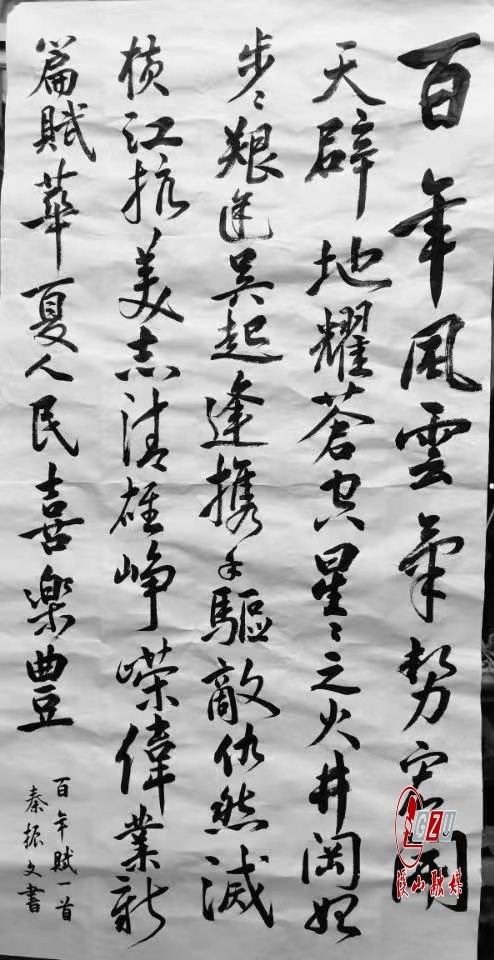 百年風雲氣勢宏開
天辟地耀蒼穹星々之火井岡始
步々艱途吴起逢携手驅敵仇然滅
横江抗美志清雄峥嶸偉業新
篇賦華夏人民喜樂豊
百年賦一首
秦振文書
GZU
溪山融媒